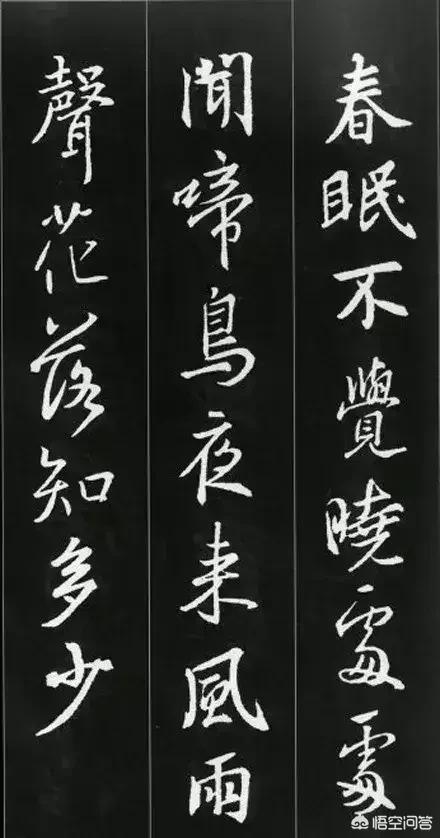 春眠不覺曉處處
聞啼鳥夜来風雨
聲花落知多少
悟空问答